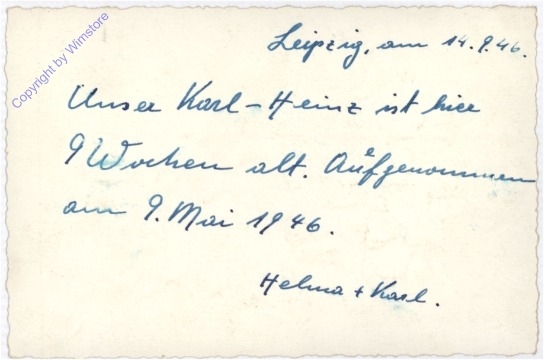 Copyright by Wimstore
Leipzig, am 14.9.46.
Unser Karl-Heinz ist hier
9 Wochen alt. Aufgenommen
am 9. Mai 1946.
Helma + Karl.